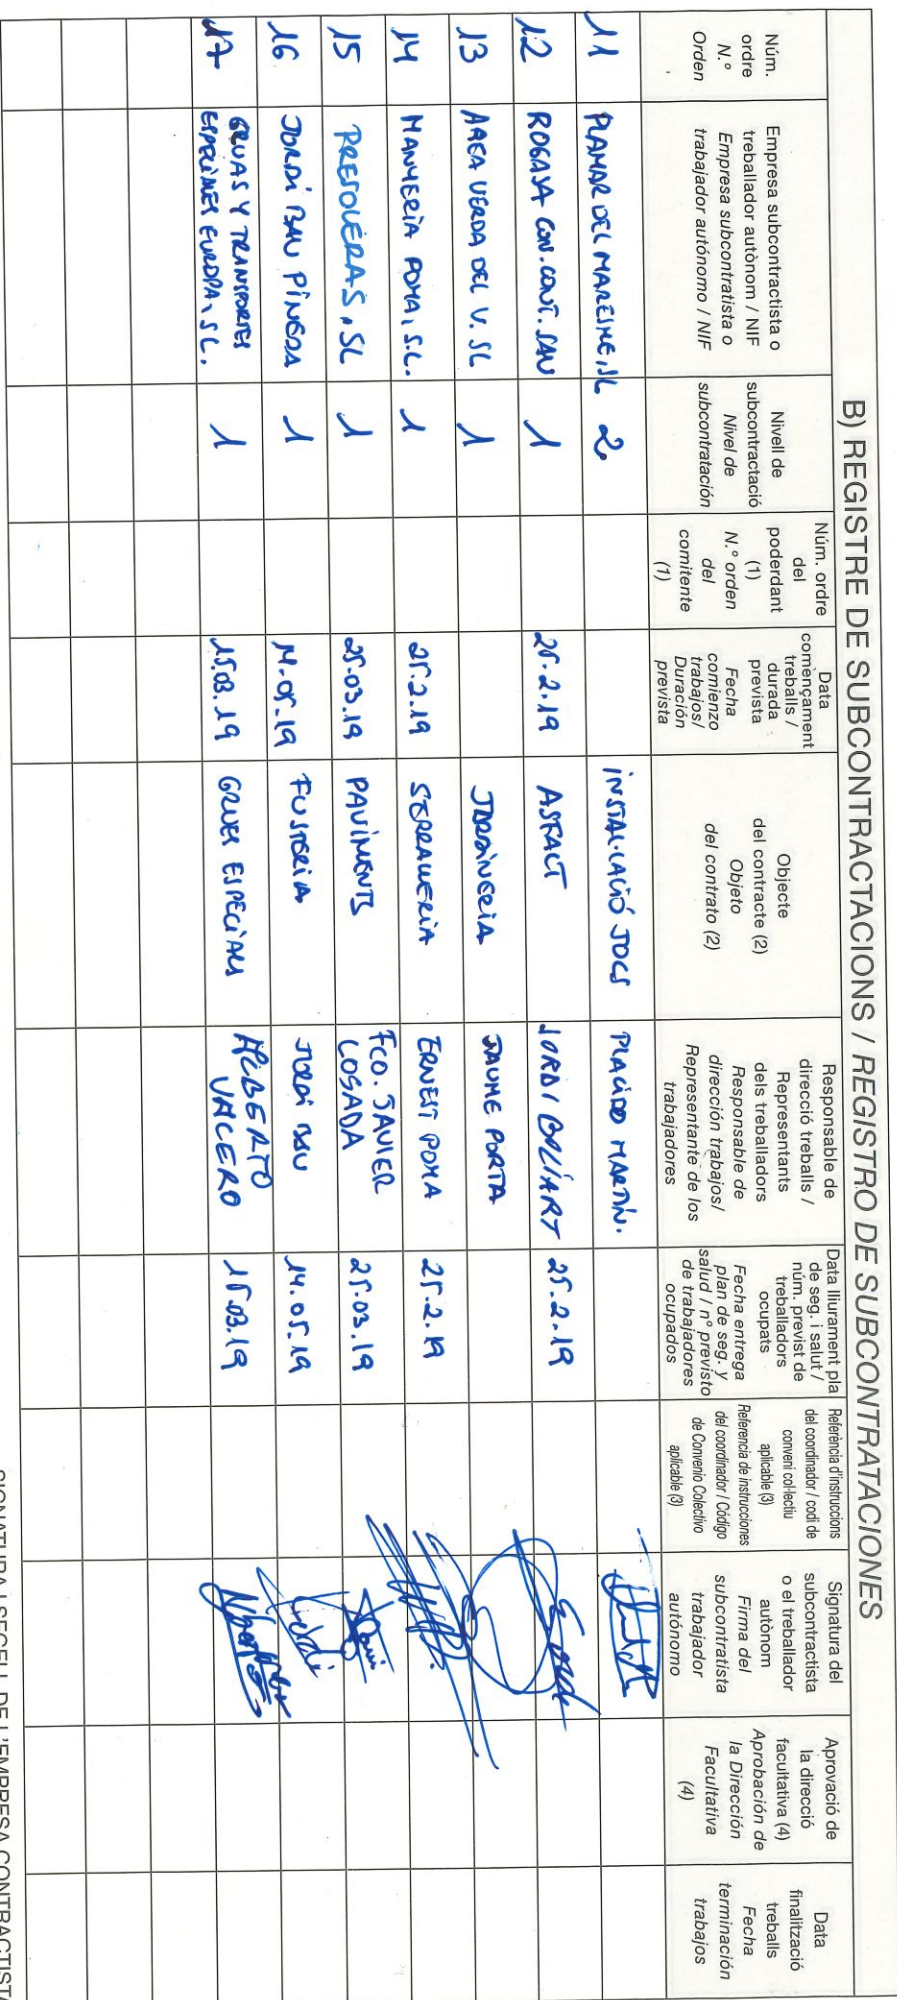 B) REGISTRE DE SUBCONTRACTACIONS / REGISTRO DE SUBCONTRATACIONES
Núm.
ordre
N.º
Orden
Empresa subcontractista o
treballador autònom / NIF
Empresa subcontratista o
trabajador autónomo / NIF
Nivell de
subcontractació
Nivel de
subcontratación
Núm. ordre
del
poderdant
(1)
N.º orden
del
comitente
(1)
Data
començament
treballs /
durada
prevista
Fecha
comienzo
trabajos/
Duración
prevista
Objecte
del contracte (2)
Objeto
del contrato (2)
Responsable de
direcció treballs /
Representants
dels treballadors
Responsable de
dirección trabajos/
Representante de los
trabajadores
Data lliurament pla
de seg. i salut /
núm. previst de
treballadors
ocupats
Fecha entrega
plan de seg. y
salud / nº previsto
de trabajadores
ocupados
Referència d'instruccions
del coordinador / codi de
conveni col·lectiu
aplicable (3)
Referencia de instrucciones
del coordinador / Código
de Convenio Colectivo
aplicable (3)
Signatura del
subcontractista
o el treballador
autònom
Firma del
subcontratista
trabajador
autónomo
Aprovació de
la direcció
facultativa (4)
Aprobación de
la Dirección
Facultativa
(4)
Data
finalització
treballs
Fecha
terminación
trabajos
11 PLAMAR DEL MARESME, SL 2 INSTAL·LACIÓ JOCS PLACIDO MARTÍN.
12 ROGASA CON. CONT. SAU 1 25.2.19 ASFALT JORDI BOLÍART 25.2.19
13 AREA VERDA DEL V. SL 1 JARDINERIA JAUME PORTA
14 MANYERIA POMA, S.L. 1 25.2.19 SERRALLERIA ERNEST POMA 25.2.19
15 PRESOLERAS, SL 1 25.03.19 PAVIMENTS FCO. JAVIER LOSADA 25.03.19
16 JORDI BAU PINEDA 1 14.05.19 FUSTERIA JORDI BAU 14.05.19
17 GRUAS Y TRANSPORTES
ESPECIALES EUROPA, SL. 1 15.03.19 GRUES ESPECIALS ALBERTO VACERO 15.03.19
SIGNATURA I SEGELL DE L'EMPRESA CONTRACTISTA